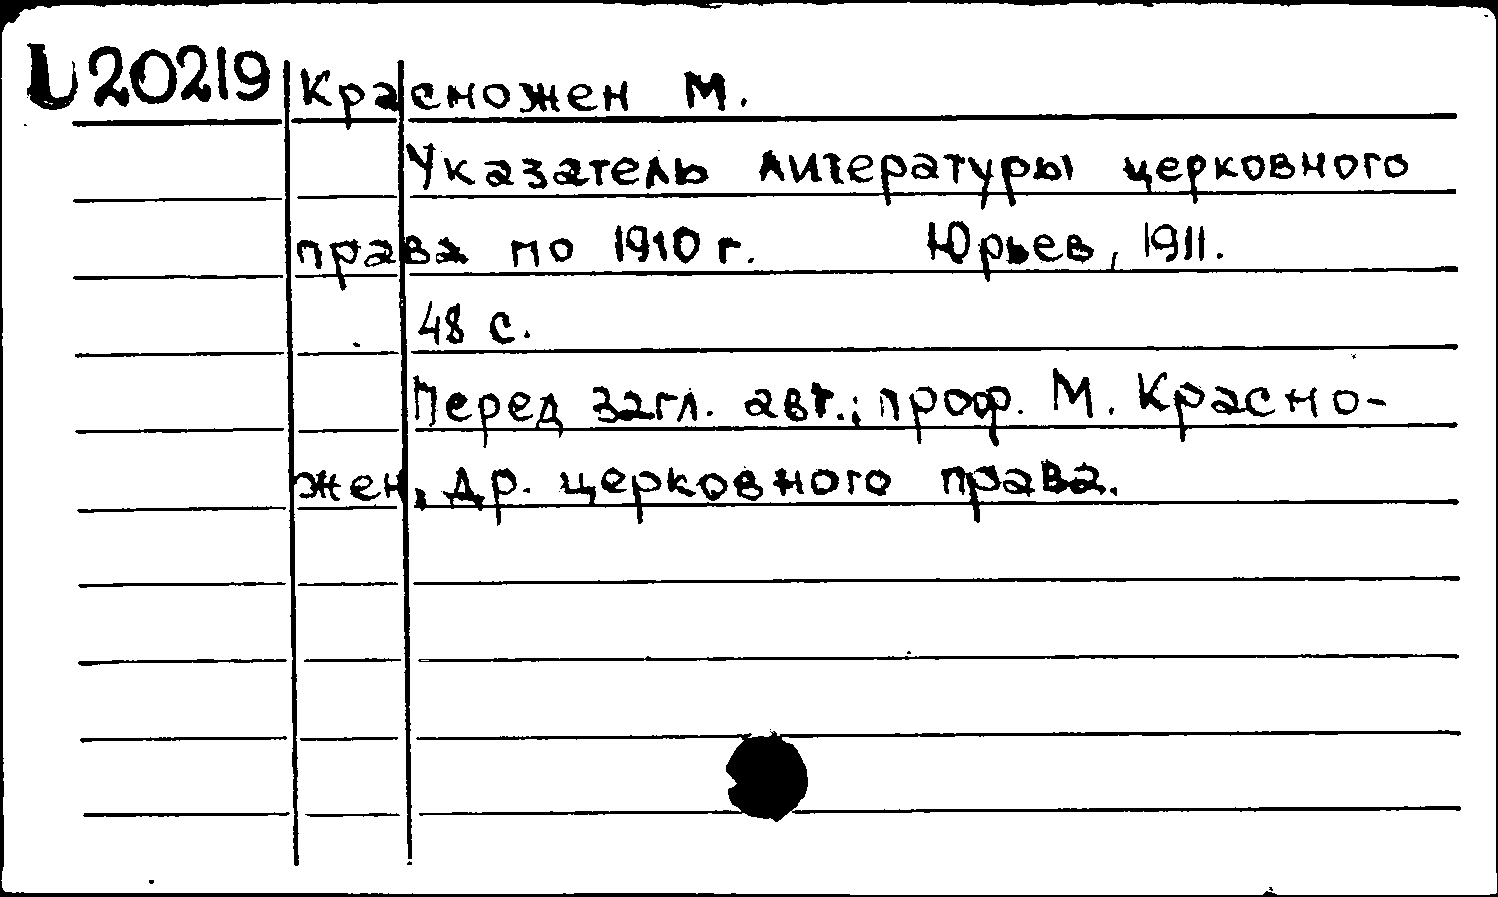 U 20219 Красножен М.
Указатель литературы церковного
права по 1910 г. Юрьев, 1911.
48 с.
Перед загл. авт.: проф. М. Красно-
жен, др. церковного права.